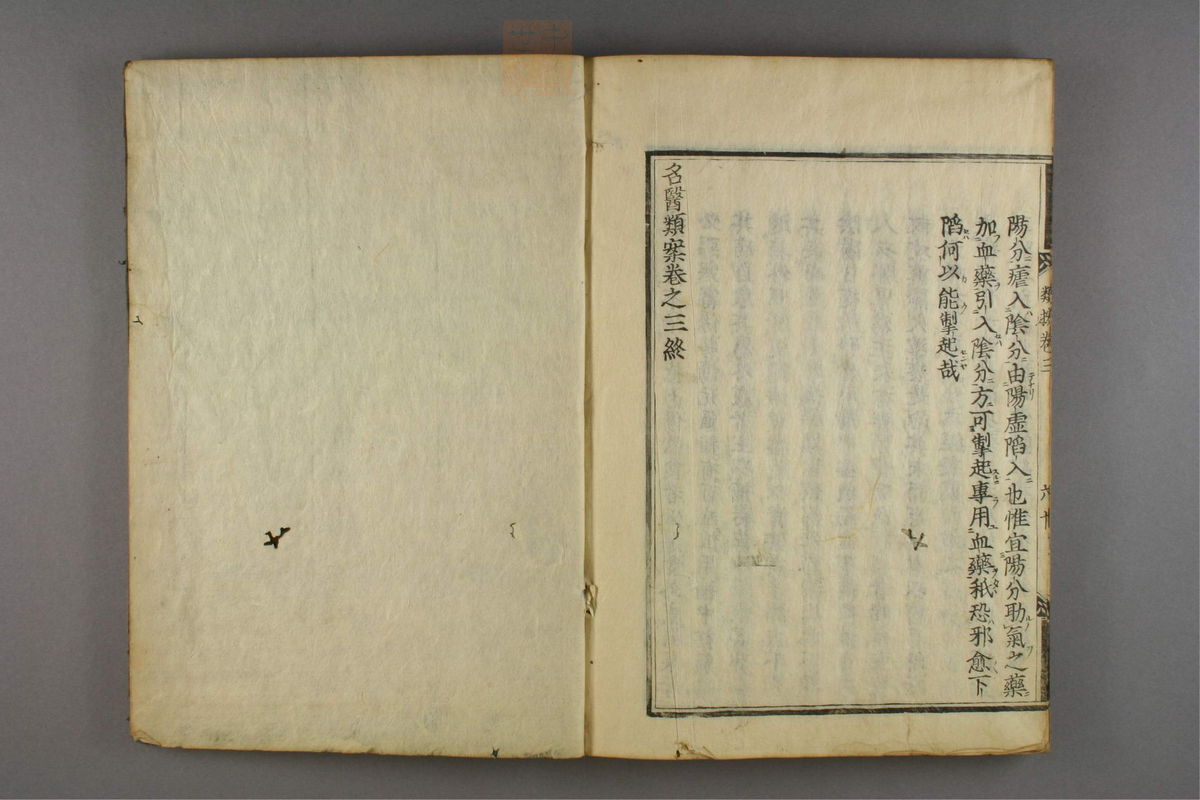 類案卷三
六十
陽分瘧入陰分由陽虛陷入也惟宜陽分助氣之藥
加血藥引入陰分方可掣起專用血藥秪恐邪愈下
陷何以能掣起哉
名醫類案卷之三終